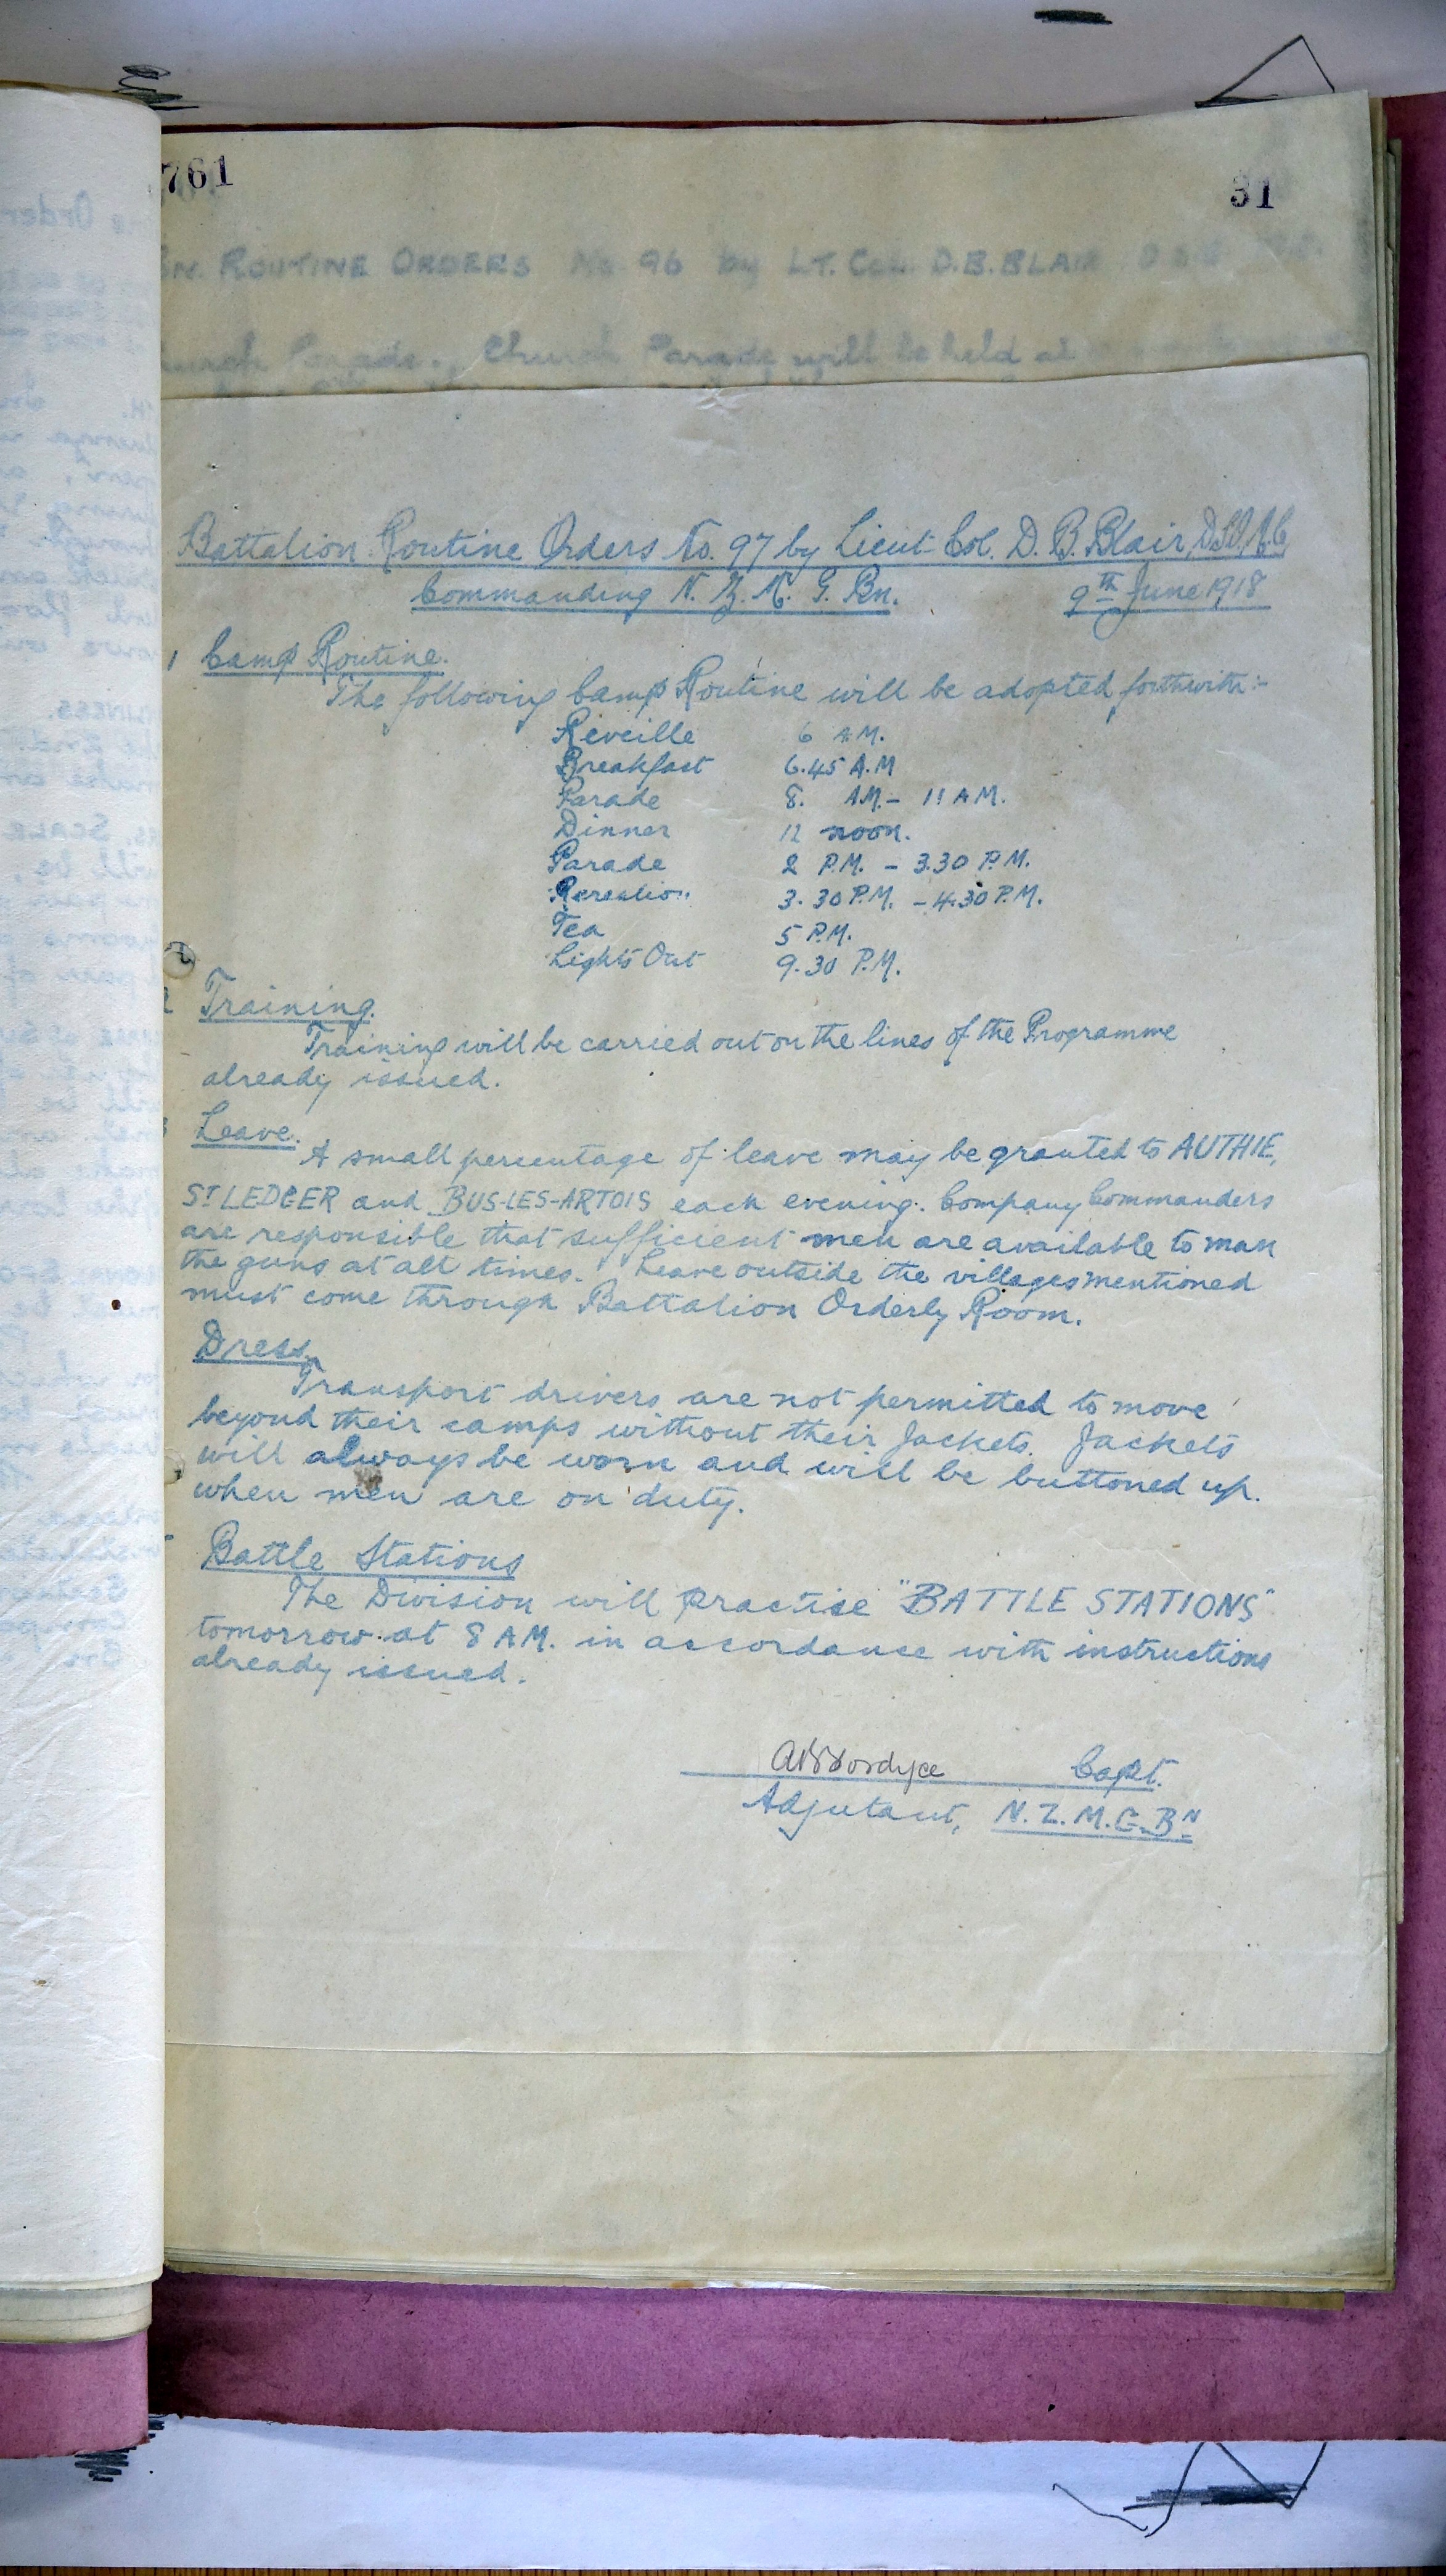 761
31
BN. ROUTINE ORDERS No 96 by LT. COL. D.B.BLAIR
Church Parade., Church Parade will be held at
Battalion Routine Orders No. 97 by Lieut-Col. D. B. Blair, DSO, M.C
Commanding N. Z. M. G. Bn. 9th June 1918
1 Camp Routine.
The following Camp Routine will be adopted forthwith:-
Reveille 6 A.M.
Breakfast 6.45 A.M
Parade 8. A.M. - 11 A.M.
Dinner 12 noon.
Parade 2 P.M. - 3.30 P.M.
Recreation 3.30 P.M. - 4.30 P.M.
Tea 5 P.M.
Lights Out 9.30 P.M.
2 Training.
Training will be carried out on the lines of the Programme
already issued.
3 Leave.
A small percentage of leave may be granted to AUTHIE,
ST LEDGER and BUS-LES-ARTOIS each evening. Company Commanders
are responsible that sufficient men are available to man
the guns at all times. Leave outside the villages mentioned
must come through Battalion Orderly Room.
Dress.
Transport drivers are not permitted to move
beyond their camps without their Jackets. Jackets
will always be worn and will be buttoned up.
when men are on duty.
Battle Stations
The Division will practise "BATTLE STATIONS"
tomorrow at 8 A.M. in accordance with instructions
already issued.
Fordyce Capt.
Adjutant, N. Z. M. G. BN